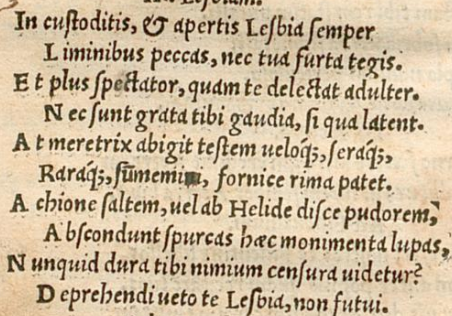 In custoditis, & apertis Lesbia semper
Liminibus peccas, nec tua furta tegis.
Et plus spectator, quam te delectat adulter.
Nec sunt grata tibi gaudia, si qua latent.
At meretrix abigit testem ueloq́;, seraq́;,
Raraq́;, fornice rima patet.
A chione saltem, uel ab Helide disce pudorem,
Abscondunt spurcas hæc monimenta lupas,
Nunquid dura tibi nimium censura uidetur?
Deprehendi ueto te Lesbia, non futui.